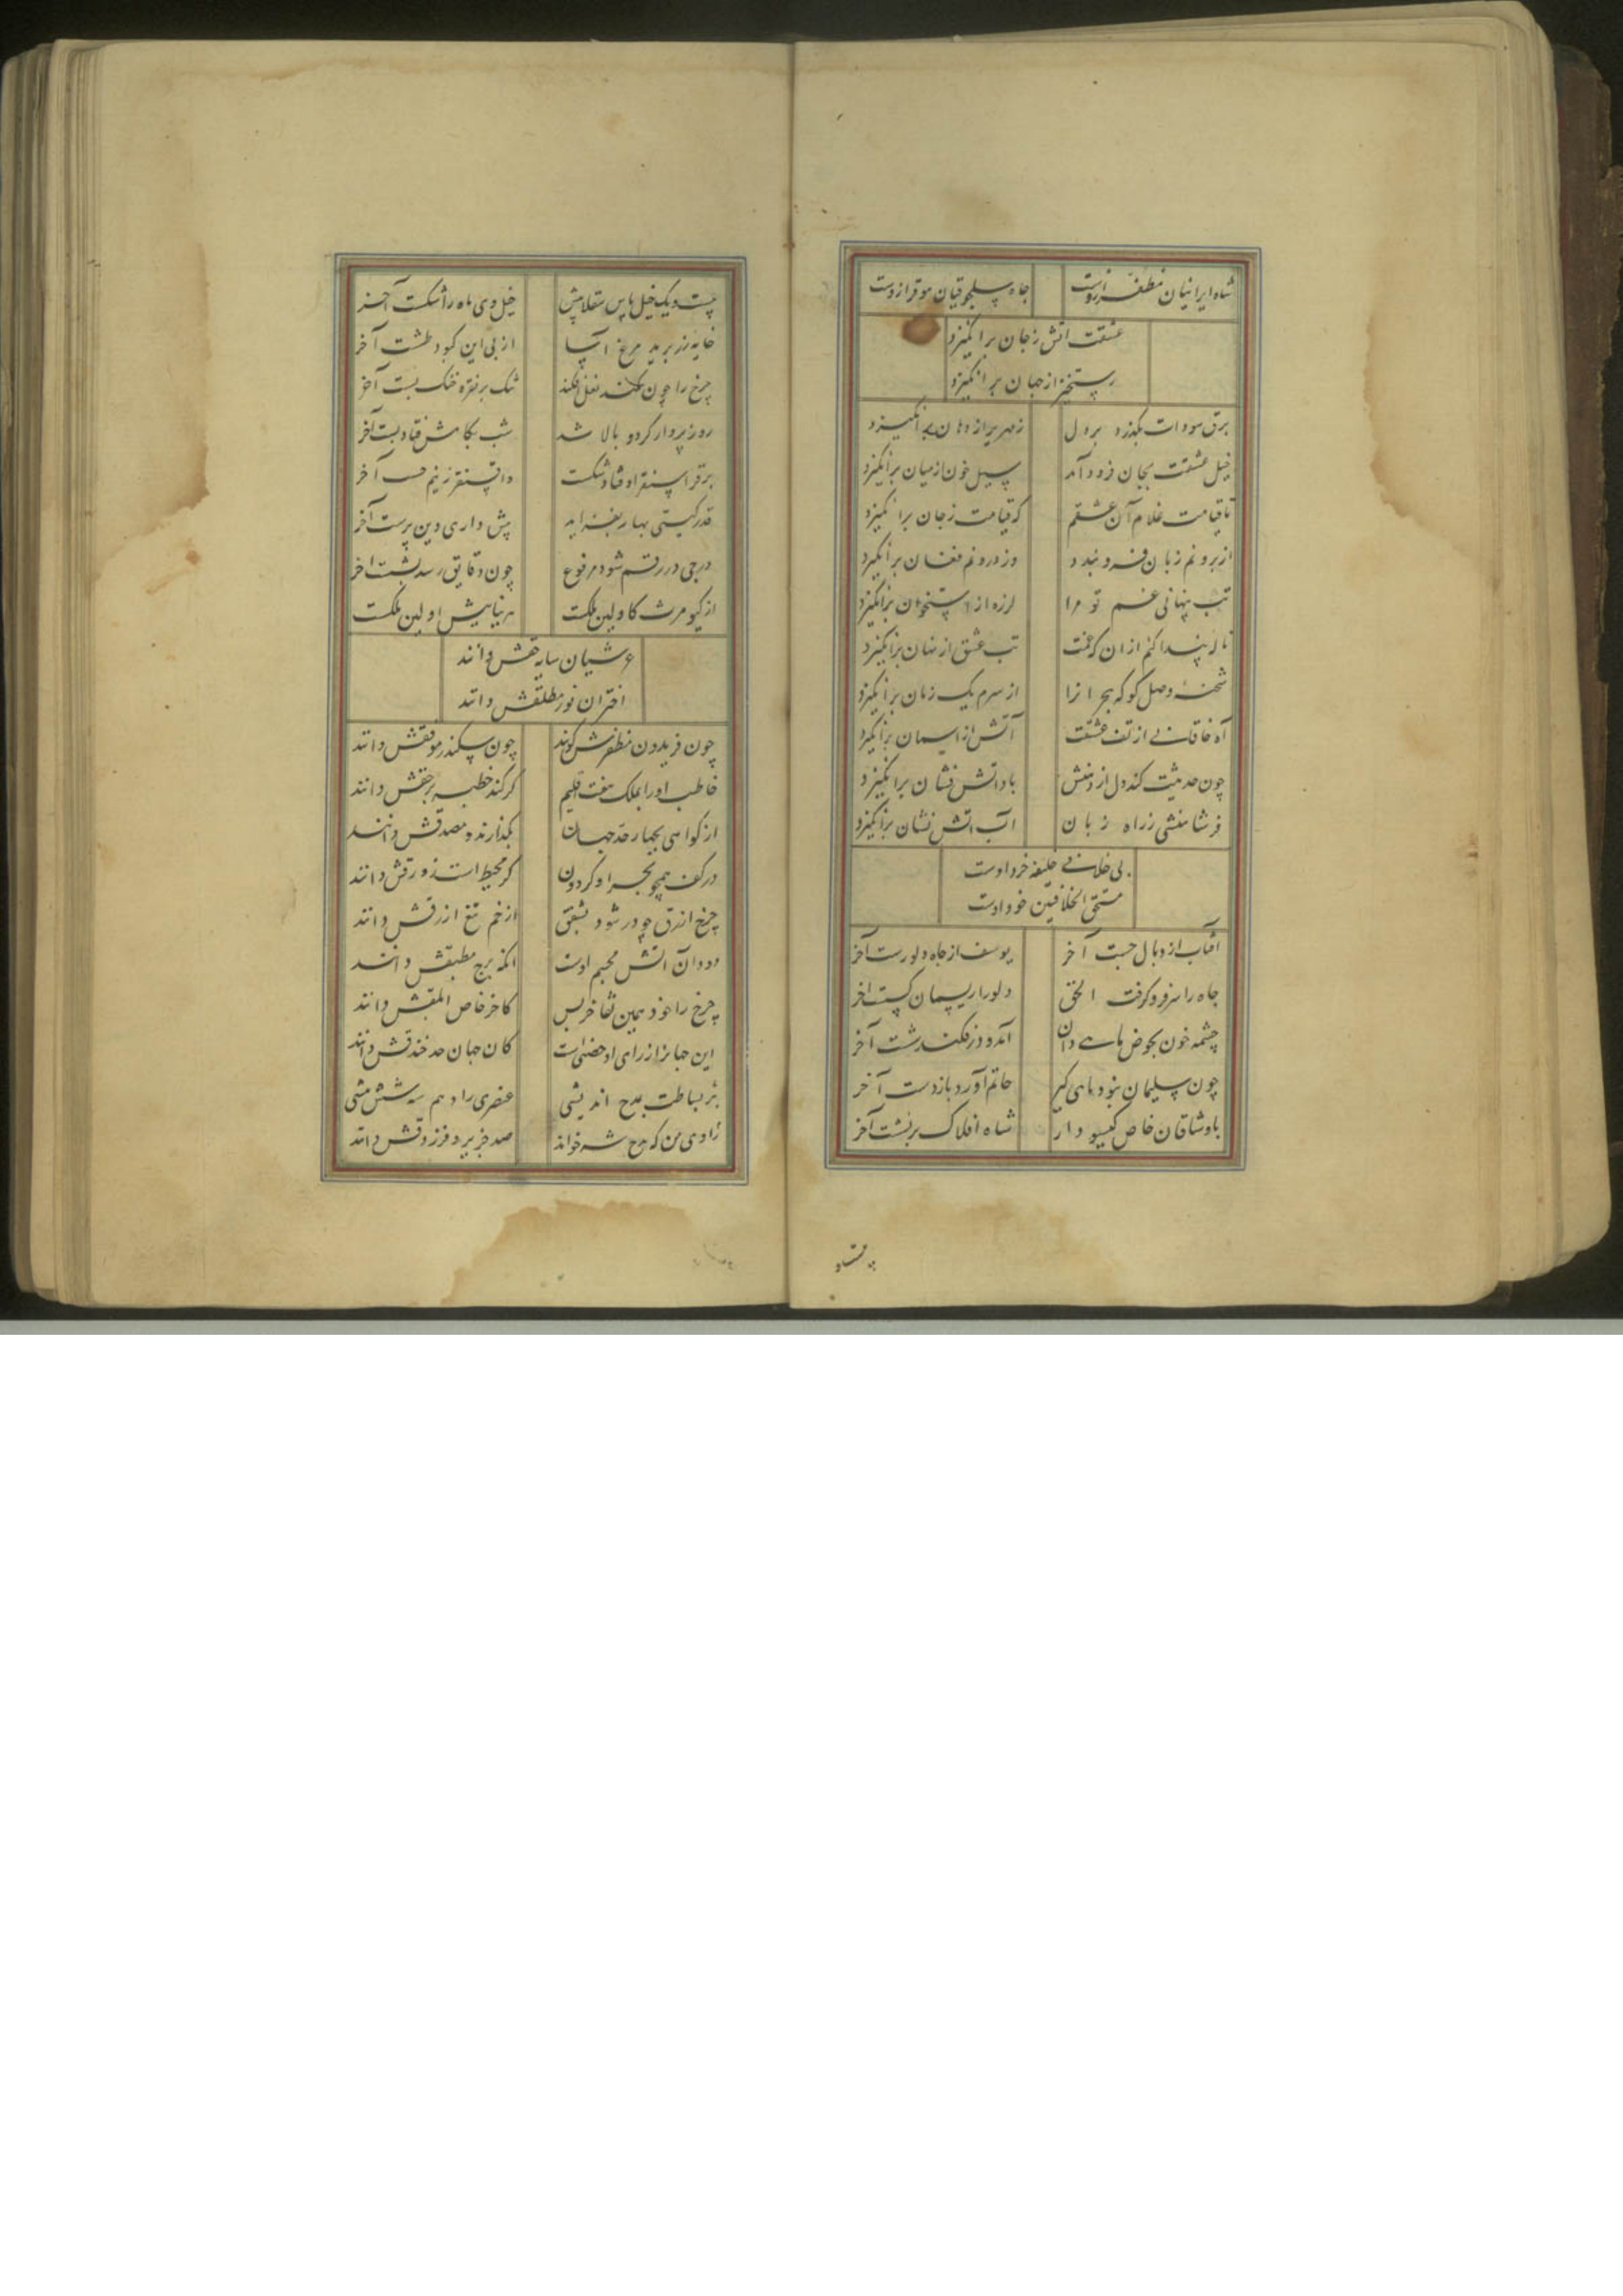 شاه ایرانیان مظفر ازوست جاه سلجوقیان موقر ازوست
عشقت اتش زجان برانگیزد
رستخیز از جهان برانگیزد
برق سودات بگذرد بر دل زمهریر از دهان برانگیزد
خیل عشقت بجان فرود آمد سیل خون از میان برانگیزد
تا قیامت غلام آن عشقم که قیامت زجان برانگیزد
از برونم زبان فرو بندد وز درونم فغان برانگیزد
تب پنهانی غم تو مرا لرزه از استخوان برانگیزد
ناله پیدا کنم ازان که غمت تب عشق از نهان برانگیزد
شحنهٔ وصل کو که هجرانرا از سرم یک زمان برانگیزد
آه خاقانی از تف عشقت آتش از اسمان برانگیزد
چون حدیثت کند دل از دهنش باد اتش فشان برانگیزد
فرشا منشی زراه زبان اب اتش نشان برانگیزد
بی خلافی خلیفه خرد اوست
مستحق الخلافتین خود اوست
افتاب از وبال جست آخر یوسف از چاه و دلو رست آخر
چاه را سر فرو گرفت الحق دلو را ریسمان گسست اخر
چشمه خون بحوض ماهی دان آمد و درفکند شست آخر
چون سلیمان نبود ماهی گیر خاتم آورد باز دست آخر
با وشاقان خاص گیسو دار شاه افلاک بر نشست آخر
بیست و یک خیل تاش سقلابیش خیل دی ماه را شکست آخر
خایه زر پرید مرغ اسا از پی این کبود طشت آخر
چرخ را چون نعل فکند تنگ بر نقره خنگ بست آخر
روز پروار کرد و بالا شد شب بکامش فتاد پست آخر
برقراسنقر اوفتاد شکست واقسنقر زبیم جست آخر
قدر گیتی بهار بفزاید پیش دارای دین پرست آخر
درجی در رقم شود مرفوع چون دقایق رسد بشست اخر
از کیومرث کاولین ملکست هر نیابیش اولین ملکست
عرشیان سایه حقش دانند
اختران نور مطلقش دانند
چون فریدون مظفرش گویند چون سکندر موفقش دانند
خاطب اورا بملک هفت اقلیم گر کند خطبه بر حقش دانند
از گواهی بچهار حد جهان بگذارند و مصدقش دانند
در کف همچو بحر او گردون گر محیط است زورقش دانند
چرخ ازرق چو در شود بشفق از خم تیغ ازرقش دانند
دود آن اتش مجسم اوست انکه برج مطبقش دانند
چرخ را خود همین تفاخر بس کاخر خاص ابلقش دانند
این جهانرا از رای او حصنی است کان جهان حد خندقش دانند
بر بساطت بمدح اندیشی عنصری را دهم سه شش بیشی
راوی من که مدح شه خواند صد جریر و فرزدقش دانند